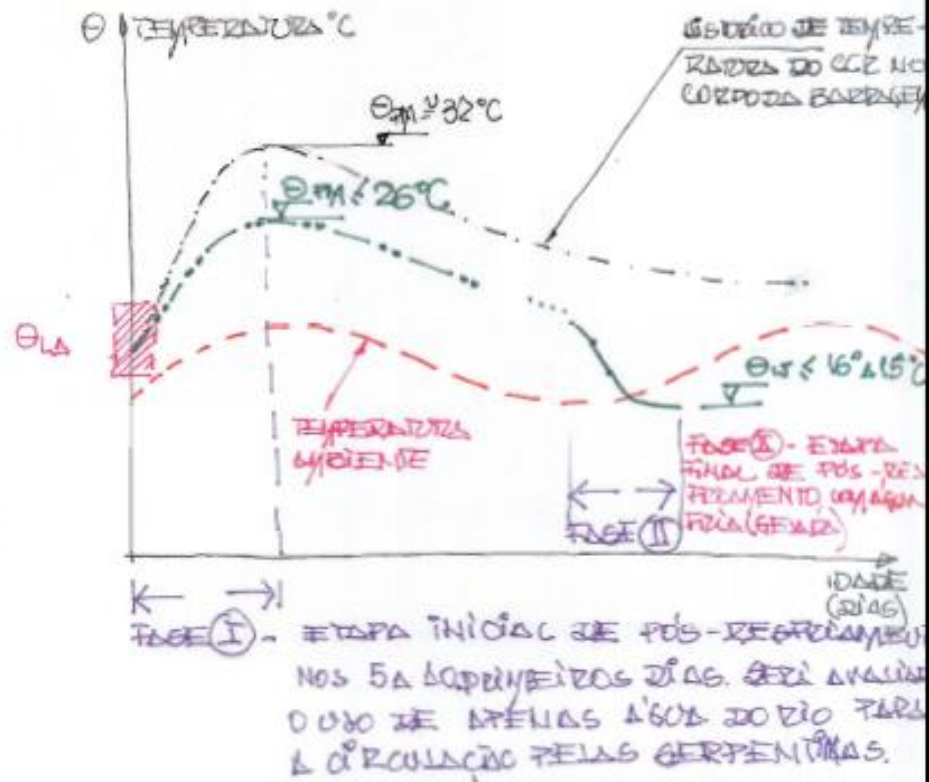 Θ TEMPERATURA °C
HISTÓRICO DE TEMPE-
RATURA DO CCR NO
CORPO DA BARRAGEM
ΘM ≅ 32°C
ΘM ≤ 26°C
ΘLA
≤ 16° A 15°C
TEMPERATURA
AMBIENTE
FASE II - ETAPA
FINAL DE PÓS-RES
FRIAMENTO, COM ÁGUA
FRIA (GELADA)
FASE II
IDADE
(DIAS)
FASE I - ETAPA INICIAL DE PÓS-RESFRIAMENT
NOS 5 A 10 PRIMEIROS DIAS. SERÁ AVALIAD
O USO DE APENAS ÁGUA DO RIO PARA
A CIRCULAÇÃO PELAS SERPENTINAS.